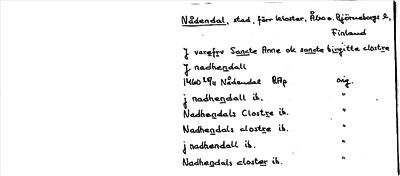 Nådendal, stad, förr kloster, Åbo o. Björneborgs l.,
Finland
J varefrv Sancte Anne ok sancte birgitte clostre
J nadhendall
1460 29/11 Nådendal RAp orig.
j nadhendall ib. "
Nadhendals Clostre ib. "
Nadhendals clostre ib. "
j nadhendall ib. "
Nadhendals closter ib. "